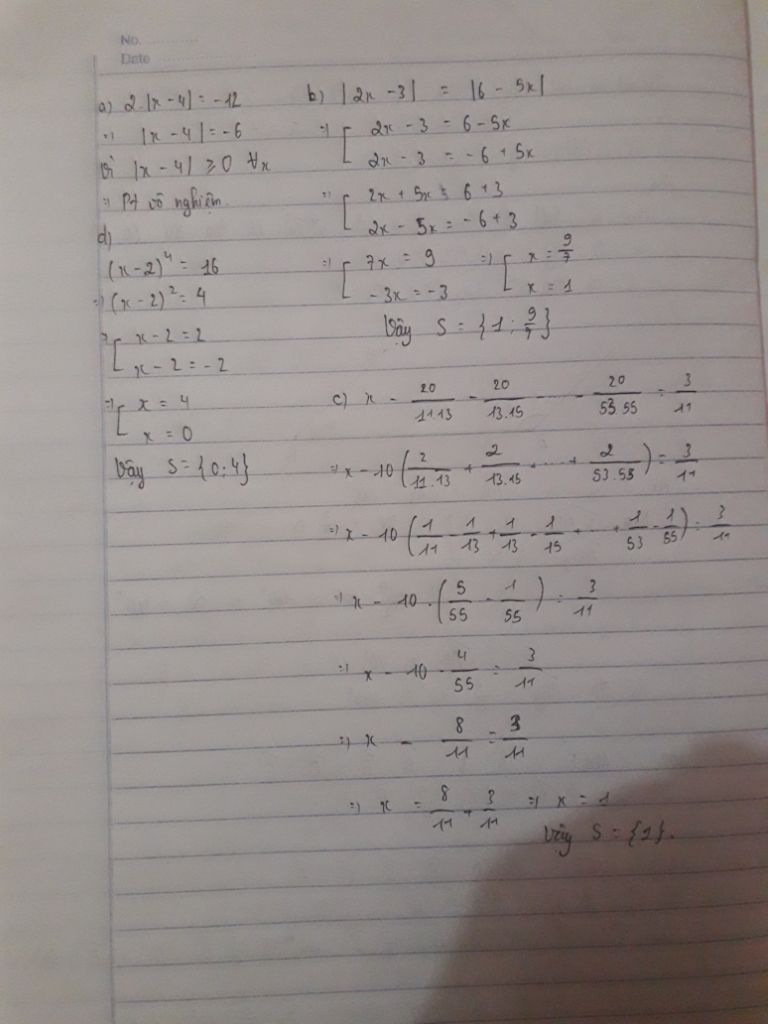 No.
Date
a) 2.|x - 4| = -12
=> |x - 4| = -6
Vì |x - 4| ≥ 0 ∀x
=> Pt vô nghiệm.
d)
(x - 2)⁴ = 16
=> (x - 2)² = 4
=> [ x - 2 = 2
x - 2 = -2
=> [ x = 4
x = 0
Vậy S = {0; 4}
b) |2x - 3| = |6 - 5x|
=> [ 2x - 3 = 6 - 5x
2x - 3 = -6 + 5x
=> [ 2x + 5x = 6 + 3
2x - 5x = -6 + 3
=> [ 7x = 9 => [ x = 9/7
-3x = -3 x = 1
Vậy S = {1; 9/7}
c) x - 20/11.13 - 20/13.15 - ... - 20/53.55 = 3/11
=> x - 10(2/11.13 + 2/13.15 + ... + 2/53.55) = 3/11
=> x - 10(1/11 - 1/13 + 1/13 - 1/15 + ... + 1/53 - 1/55) = 3/11
=> x - 10.(5/55 - 1/55) = 3/11
=> x - 10 . 4/55 = 3/11
=> x - 8/11 = 3/11
=> x = 8/11 + 3/11 => x = 1
Vậy S = {1}.